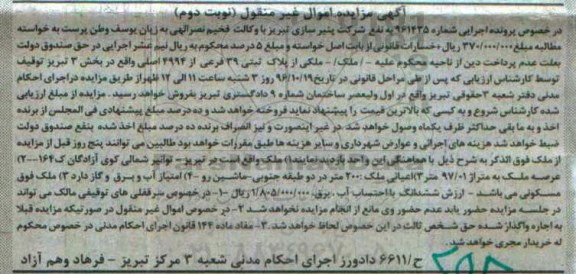 آگهی مزایده اموال غیر منقول (نوبت دوم)
در خصوص پرونده اجرایی شماره ۹۶۱۴۳۵ به نفع شرکت پنیر سازی تبریز با وکالت فخیم نصرالهی به زیان یوسف وطن پرست به خواسته
مطالبه مبلغ ۳۷۰/۰۰۰/۰۰۰ ریال +خسارات قانونی از بابت اصل خواسته و مبلغ ۵ درصد محکوم به ریال نیم عشر اجرایی در حق صندوق دولت
بعلت عدم پرداخت دین از ناحیه محکوم علیه - /ملک/ - ملکی از پلاک ثبتی ۳۹ فرعی از ۴۹۹۴ اصلی واقع در بخش ۳ تبریز توقیف
توسط کارشناس ارزیابی که پس از طی مراحل قانونی در تاریخ ۹۶/۱۰/۱۹ روز ۳ شنبه ساعت ۱۱ الی ۱۲ ظهر از طریق مزایده در اجرای احکام
مدنی دفتر شعبه ۳ حقوقی تبریز واقع در اول ولیعصر ساختمان شماره ۹ دادگستری تبریز بفروش خواهد رسید . مزایده از مبلغ ارزیابی
شده کارشناس شروع و به کسی که بالاترین قیمت را پیشنهاد نماید فروخته خواهد شد و ده درصد مبلغ پیشنهادی فی المجلس از برنده
اخذ و به ما بقی حداکثر ظرف یکماه وصول خواهد شد. در غیر اینصورت و نیز انصراف برنده ده درصد مبلغ اخذ شده بنفع صندوق دولت
ضبط خواهد شد هزینه های اجرائی و عوارض شهرداری و سایر هزینه ها طبق مقررات خواهد بود طالبین می توانند پنج روز قبل از مزایده
از ملک فوق الذکر به شرح ذیل با هماهنگی این واحد بازدید نمایند۱) ملک واقع است در تبریز - توانیر شمالی کوی آزادگان ک۱۶۴---۲)
عرصه ملک به متراژ ۹۷/۰۱ متر ۳)اعیانی ملک :۲۰۰ متر در دو طبقه جنوبی-ماشین رو -۴) امتیاز آب و برق و گاز دارد ۳) ملک فوق
مسکونی می باشد - ارزش ششدانگ با احتساب آب .برق. ۱/۸۰۵/۰۰۰/۰۰۰ ریال -۱- در خصوص سرقفلی های توقیفی مالک می تواند
در جلسه مزایده حضور یابد عدم حضور وی مانع از انجام مزایده نخواهد شد ۲- در خصوص اموال غیر منقول در صورتیکه مزایده قبلا
به اجاره واگذار شده حق شخص ثالث در این خصوص لحاظ خواهد شد. ۳- مفاد ماده ۱۴۴ قانون اجرای احکام مدنی در خصوص محکوم
له خریدار مجری خواهد شد.
ح/۶۶۱۱ دادورز اجرای احکام مدنی شعبه ۳ مرکز تبریز - فرهاد وهم آزاد